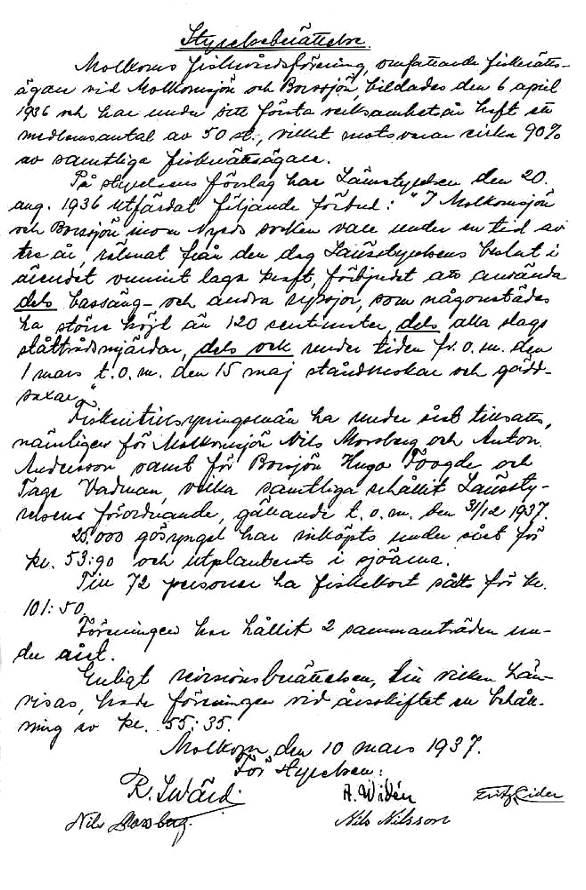 Styrelseberättelse.
Molkoms fiskevårdsförening, omfattande fiskerätts-
ägare vid Molkomsjön och Borssjön, bildades den 6 april
1936 och har under sitt första verksamhetsår haft ett
medlemsantal av 50 st., vilket motsvarar cirka 90%
av samtliga fiskerättsägare.
På styrelsens förslag har Länsstyrelsen den 20.
aug. 1936 utfärdat följande förbud: "I Molkomsjön
och Borssjön inom Nyeds socken vare under en tid av
tre år, räknat från den dag Länsstyrelsens beslut i
ärendet vunnit laga kraft, förbjudet att använda
dels bassäng- och andra ryssjor, som någonstädes
ha större höjd än 120 centimeter, dels alla slags
ståltrådsmjärdar, dels ock under tiden fr. o. m. den
1 mars t. o. m. den 15 maj ståndkrokar och gädd-
saxar."
Fisketillsyningsmän ha under året tillsatts,
nämligen för Molkomsjön Nils Mossberg och Anton
Andersson samt för Borssjön Hugo Foogde och
Tage Vadman, vilka samtliga erhållit Länssty-
relsens förordnande, gällande t. o. m. den 31/12 1937.
25.000 gösyngel har inköpts under året för
kr. 53:90 och utplanterats i sjöarna.
Till 72 personer ha fiskekort sålts för kr.
101:50.
Föreningen har hållit 2 sammanträden un-
der året.
Enligt revisionsberättelsen, till vilken hän-
visas, hade föreningen vid årsskiftet en behåll-
ning av kr. 55:35.
Molkom den 10 mars 1937.
För styrelsen:
R. Swärd. A. Widén Fritz Lider
Nils Mossberg. Nils Nilsson